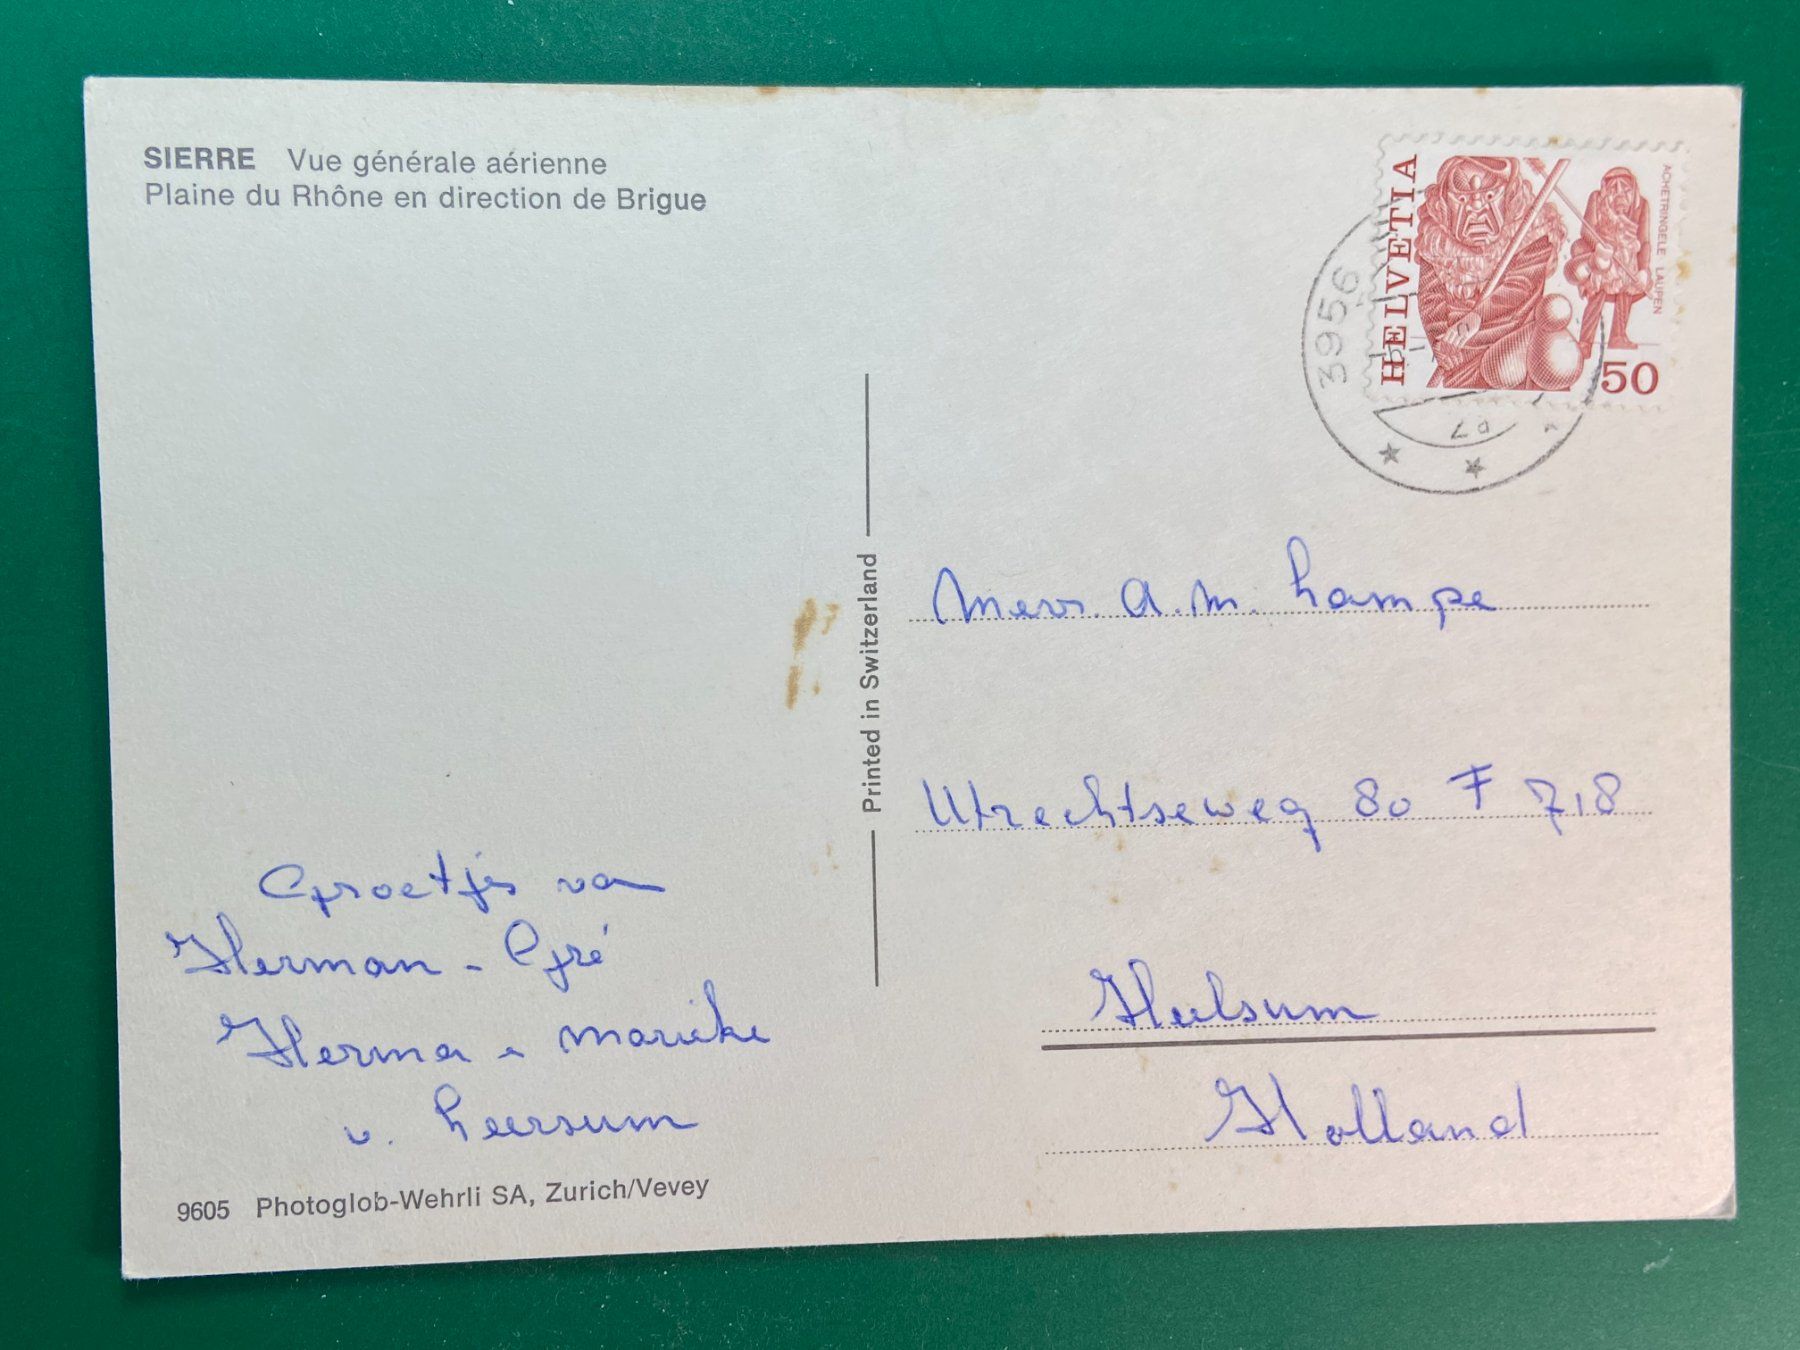 SIERRE Vue générale aérienne
Plaine du Rhône en direction de Brigue
HELVETIA
ACHETRINGELE LAUPEN
50
3956
Printed in Switzerland
Mevr. A.M. Lampe
Utrechtseweg 80 F 718
Heelsum
Holland
Groetjes van
Herman - Gré
Herma - Marieke
v. Leersum
9605 Photoglob-Wehrli SA, Zurich/Vevey